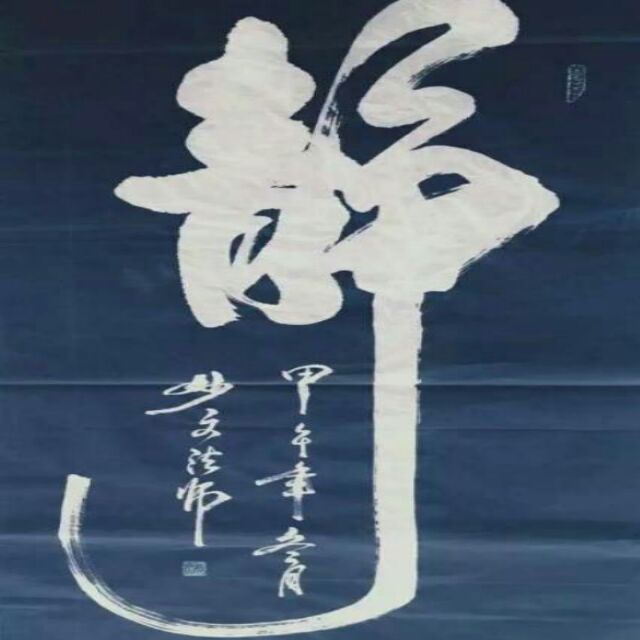 静
甲午年冬月
妙文法师